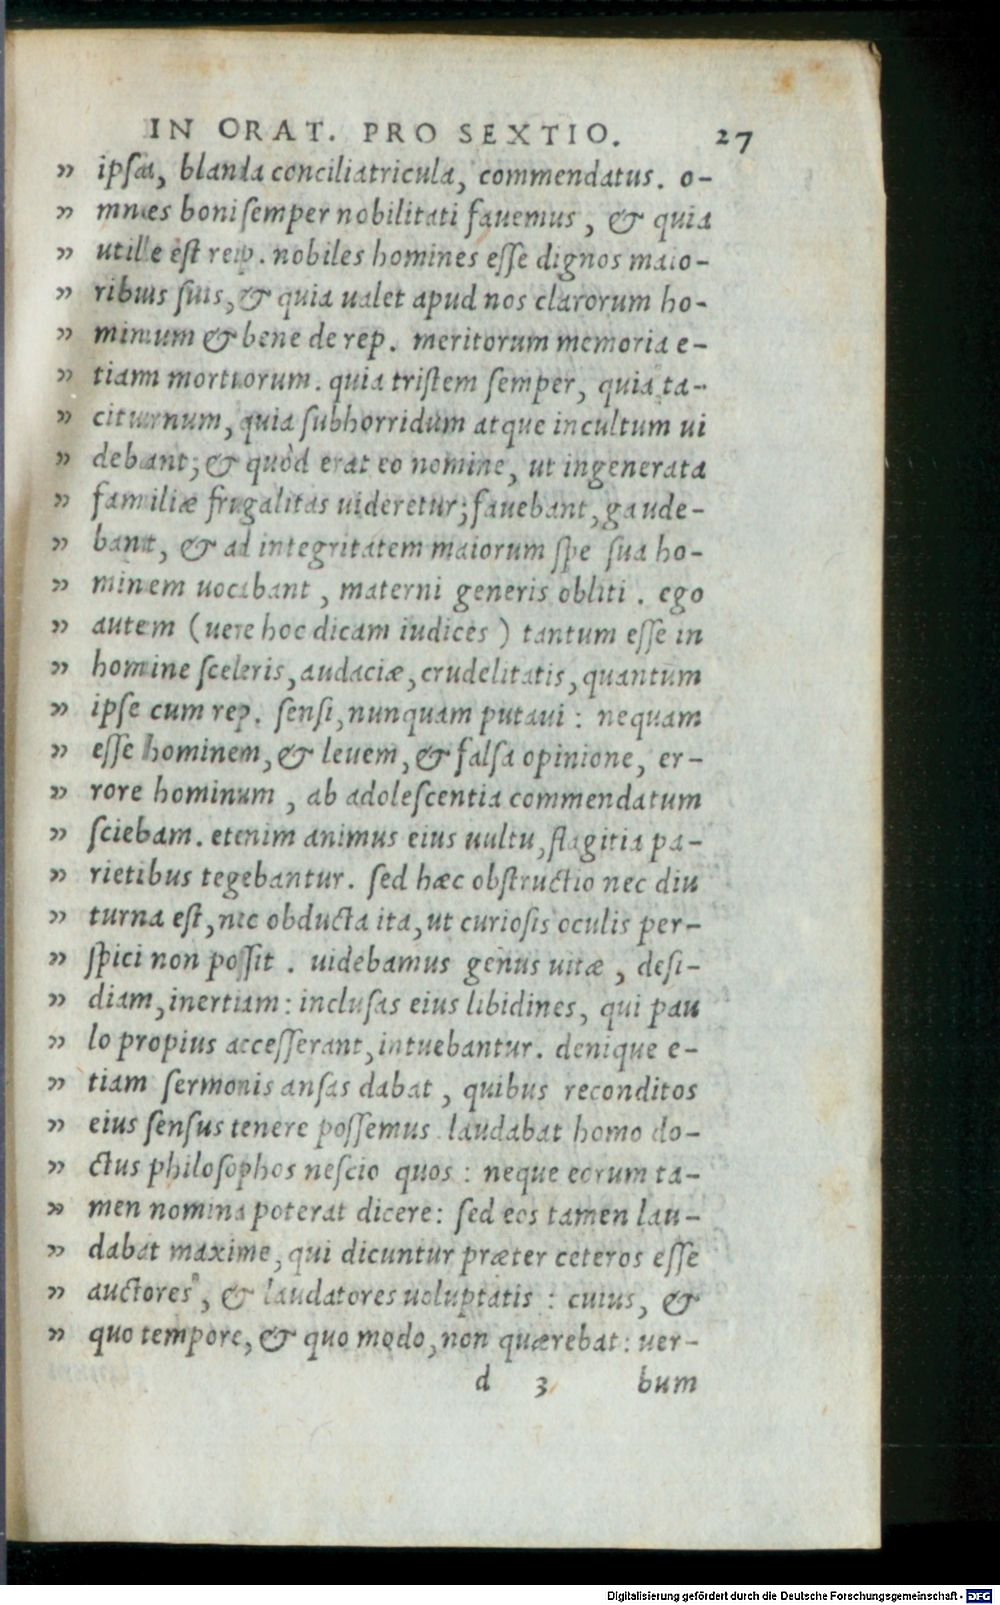 IN ORAT. PRO SEXTIO. 27
” ipsa, blanda conciliatricula, commendatus. o-
” mnes boni semper nobilitati fauemus, & quia
” utile est reip. nobiles homines esse dignos maio-
” ribus suis, & quia ualet apud nos clarorum ho-
” minum & bene de rep. meritorum memoria e-
” tiam mortuorum. quia tristem semper, quia ta-
” citurnum, quia subhorridum atque incultum ui
” debant; & quòd erat eo nomine, ut ingenerata
” familiæ frugalitas uideretur; fauebant, gaude-
” bant, & ad integritatem maiorum spe sua ho-
” minem uocabant, materni generis obliti. ego
” autem (uere hoc dicam iudices) tantum esse in
” homine sceleris, audaciæ, crudelitatis, quantum
” ipse cum rep. sensi, nunquam putaui: nequam
” esse hominem, & leuem, & falsa opinione, er-
” rore hominum, ab adolescentia commendatum
” sciebam. etenim animus eius uultu, flagitia pa-
” rietibus tegebantur. sed hæc obstructio nec diu
” turna est, nec obducta ita, ut curiosis oculis per-
” spici non possit. uidebamus genus uitæ, desi-
” diam, inertiam: inclusas eius libidines, qui pau
” lo propius accesserant, intuebantur. denique e-
” tiam sermonis ansas dabat, quibus reconditos
” eius sensus tenere possemus. laudabat homo do-
” ctus philosophos nescio quos: neque eorum ta-
” men nomina poterat dicere: sed eos tamen lau-
” dabat maxime, qui dicuntur præter ceteros esse
” auctores, & laudatores uoluptatis: cuius, &
” quo tempore, & quo modo, non quærebat: uer-
d 3 bum
Digitalisierung gefördert durch die Deutsche Forschungsgemeinschaft - DFG